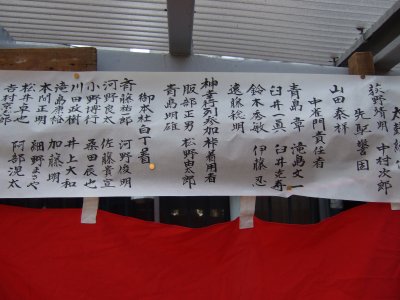 荻野靖朔 中村次郎
先駆警固
山田泰祥
中雀門責任者
青島章 滝島文一
臼井一真 臼井克寿
鈴木秀敏 伊藤忍
遠藤聡明
神幸列参加裃着用者
服部正男 松野由太郎
青島明雄
御本社白丁着
斉藤祐一郎 河野俊明
河野良太 佐藤貴宣
小野博行 桑田辰也
川田政樹 井上大和
滝島康裕 加藤明
本間正明 細野まさや
松井卓也 阿部滉太
吉村京一郎